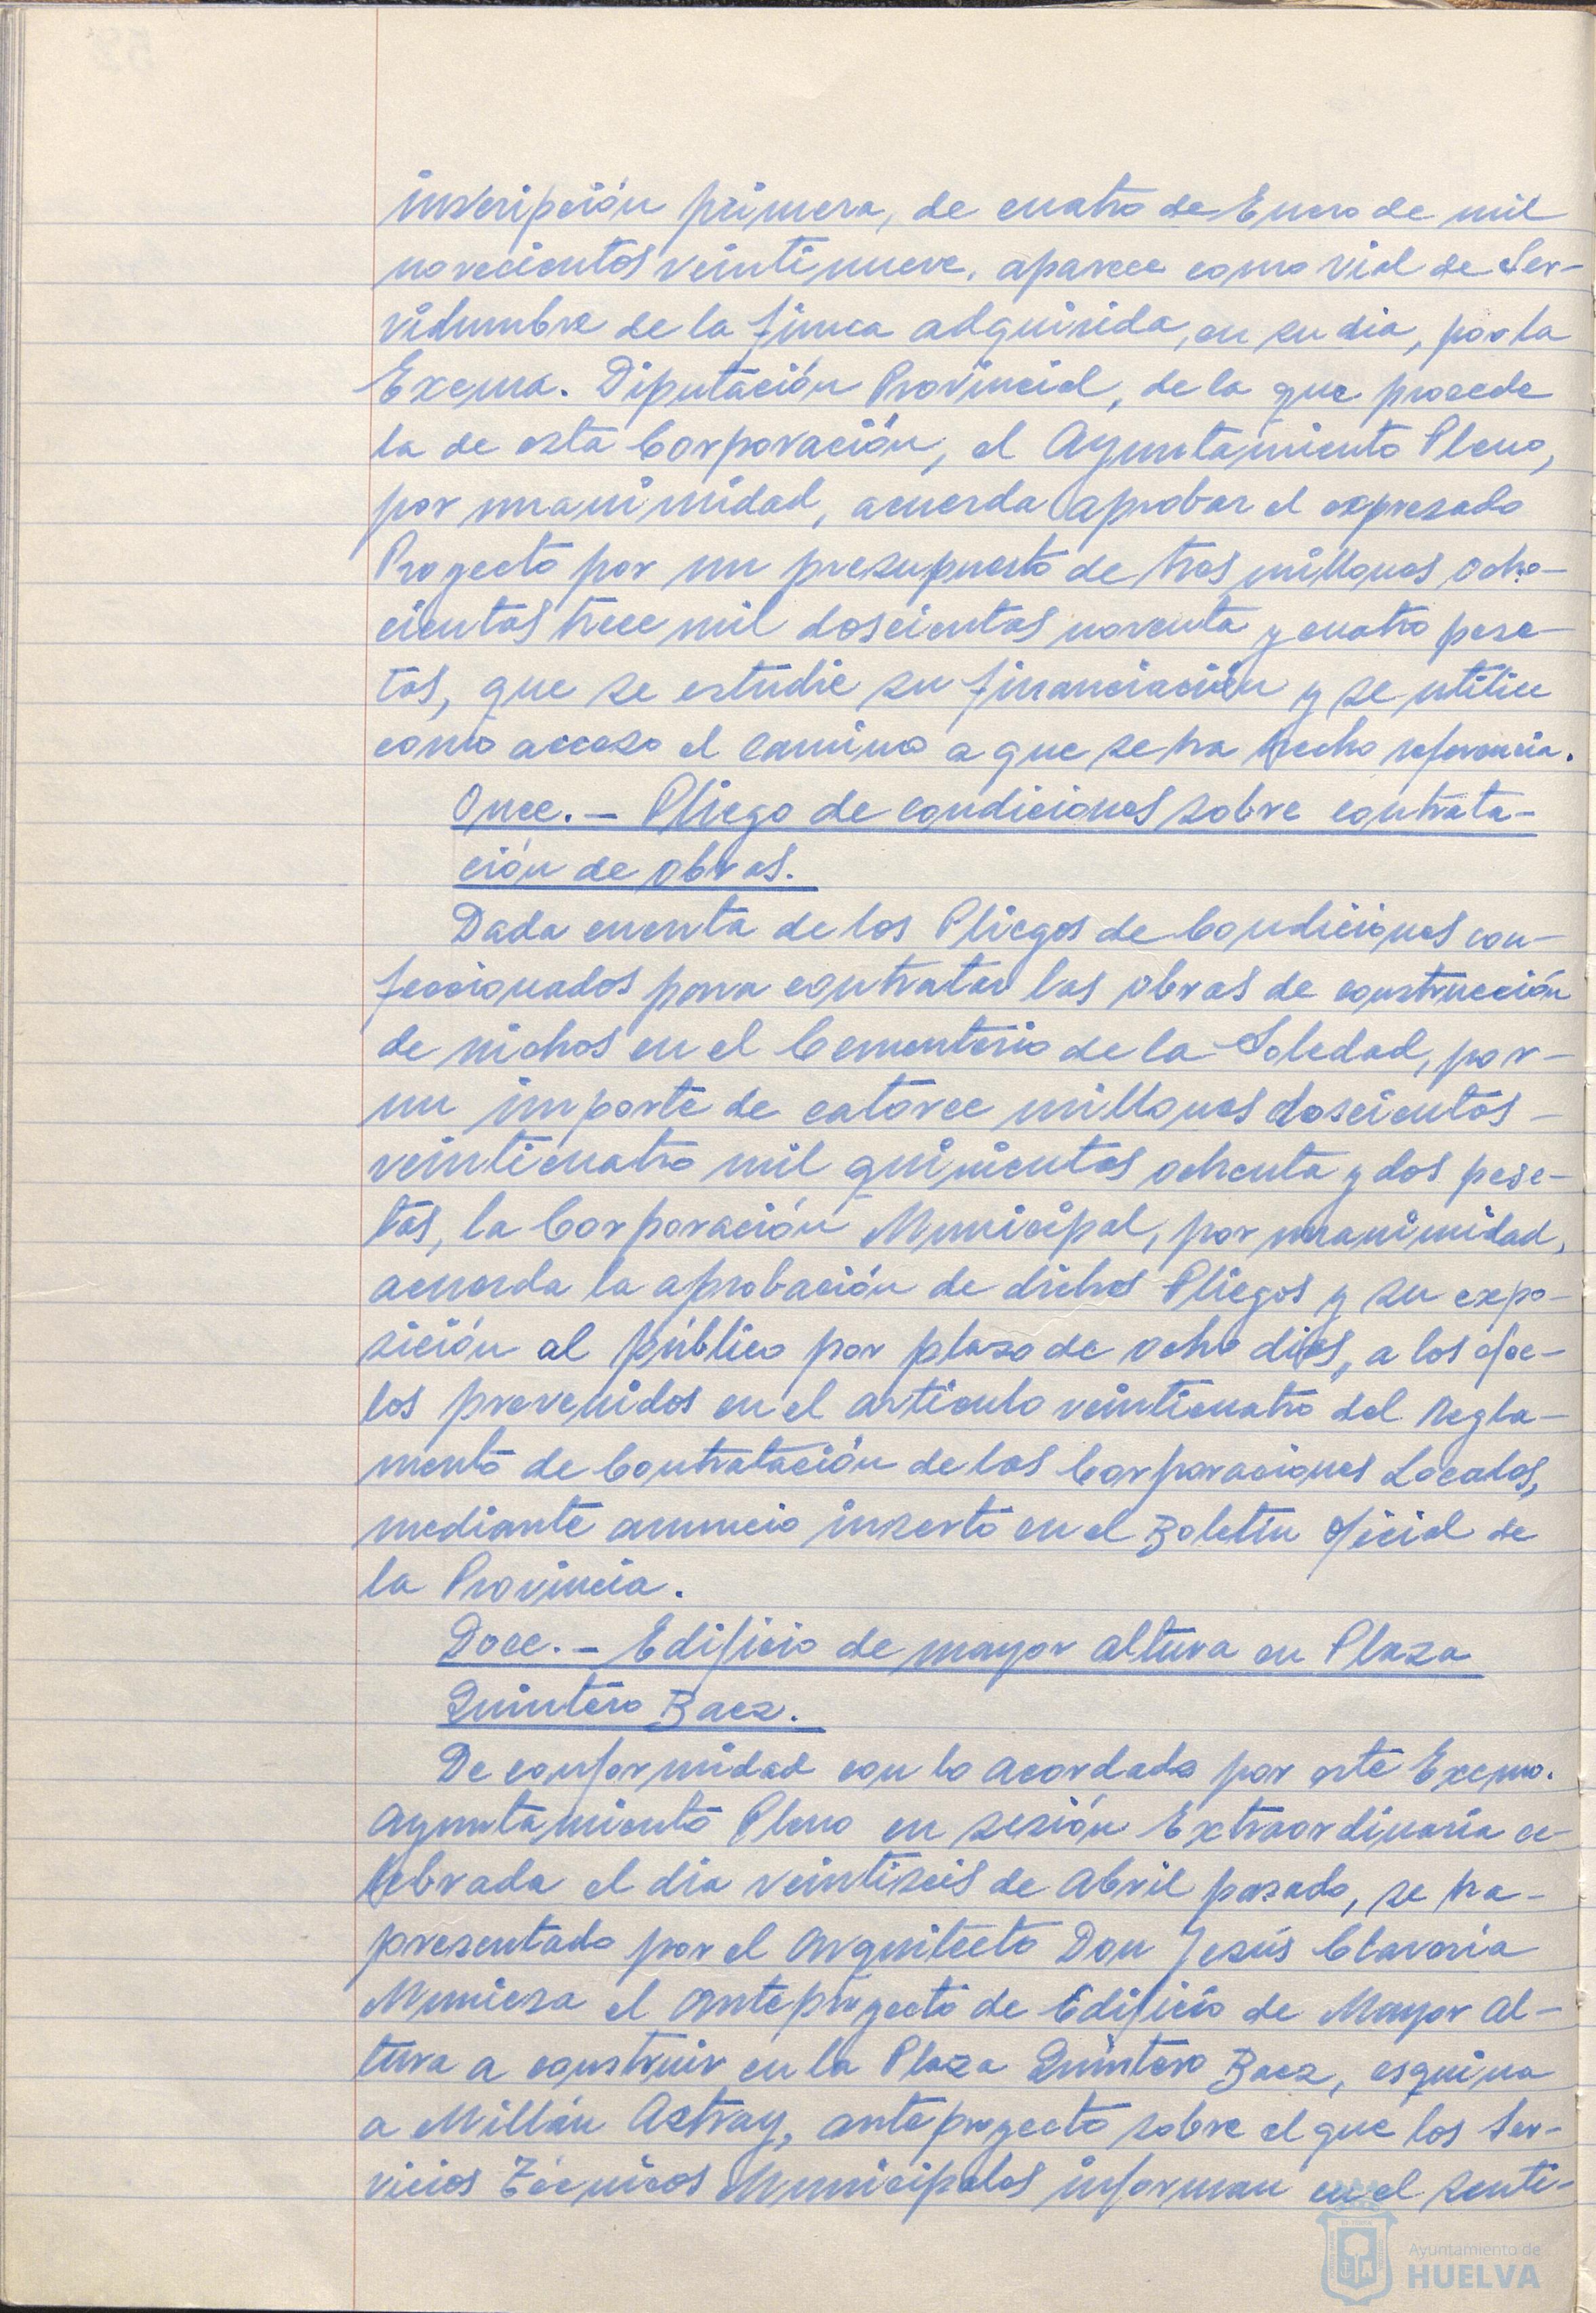 inscripción primera, de cuatro de Enero de mil
novecientos veintinueve, aparece como vial de Ser-
vidumbre de la finca adquirida, en su dia, por la
Excma. Diputación Provincial, de la que procede
la de esta Corporación, el Ayuntamiento Pleno,
por unanimidad, acuerda aprobar el expresado
Proyecto por un presupuesto de tres millones ocho-
cientas trece mil doscientas noventa y cuatro pese-
tas, que se estudie su financiación y se utilice
como acceso el camino a que se ha hecho referencia.
Once.- Pliego de condiciones sobre contrata-
ción de obras.
Dada cuenta de los Pliegos de Condiciones con-
feccionados para contratar las obras de construcción
de nichos en el Cementerio de la Soledad, por-
un importe de catorce millones doscientas-
veinticuatro mil quinientas ochenta y dos pese-
tas, la Corporación Municipal, por unanimidad,
acuerda la aprobación de dichos Pliegos y su expo-
sición al público por plazo de ocho dias, a los efec-
tos prevenidos en el articulo veinticuatro del Regla-
mento de Contratación de las Corporaciones Locales,
mediante anuncio inserto en el Boletin Oficial de
la Provincia.
Doce.- Edificio de mayor altura en Plaza
Quintero Baez.
De conformidad con lo acordado por este Excmo.
Ayuntamiento Pleno en sesión Extraordinaria ce-
lebrada el dia veintiseis de Abril pasado, se ha-
presentado por el Arquitecto Don Jesús Clavería
Muniesa el Anteproyecto de Edificio de Mayor Al-
tura a construir en la Plaza Quintero Baez, esquina
a Millán Astray, anteproyecto sobre el que los Ser-
vicios Técnicos Municipales informan en el senti-
Ayuntamiento de
HUELVA